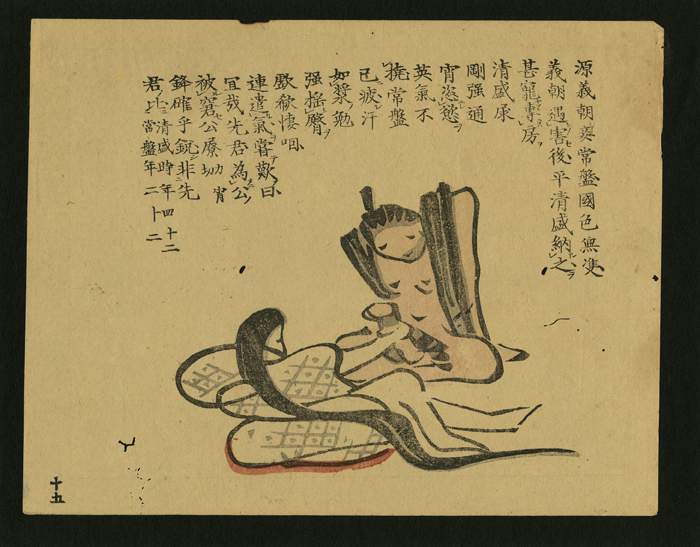 源義朝妾常盤國色無雙
義朝遇害後平清盛納之
甚寵專房
清盛
剛强通
宵恣慾
英氣不
撓常盤
已疲汗
如漿勉
强揺臀
歔欷悽咽
連遣氣甞歎曰
宜哉先君為公
被窘公屡劫
鋒確乎鋭非先
君比
清盛時年四十二
常盤年二十二
十五